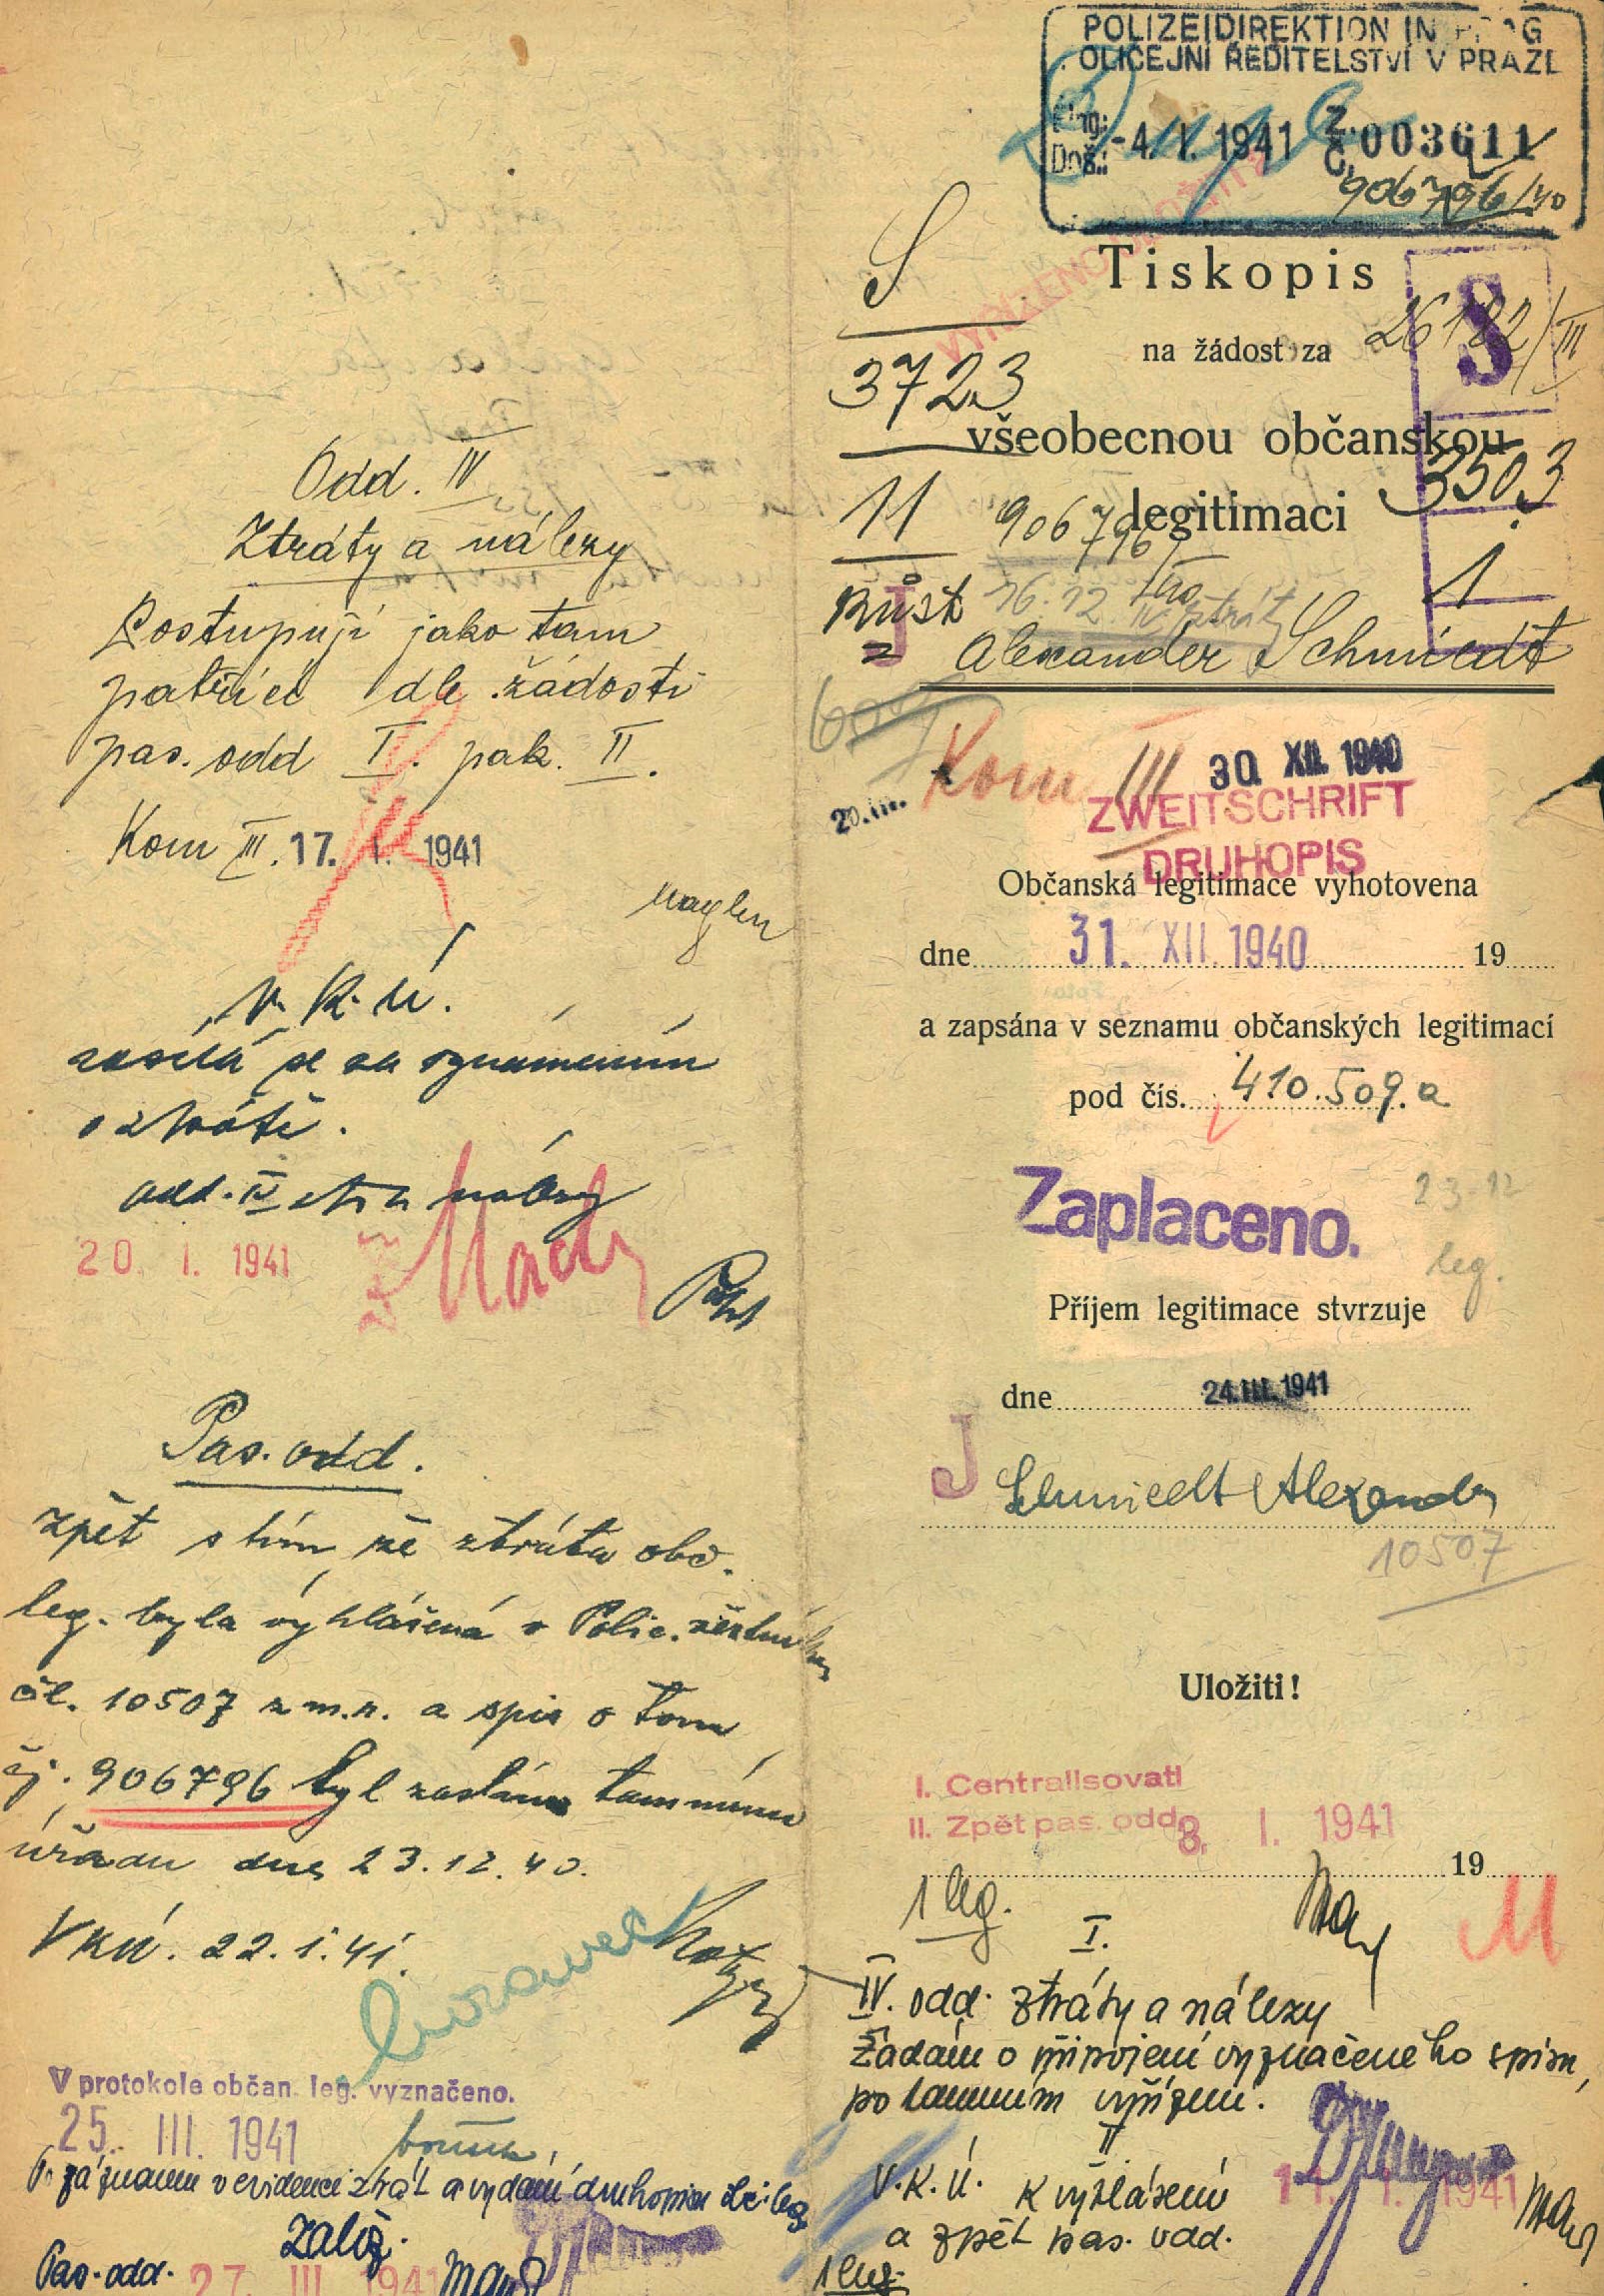 Odd. IV
Ztráty a nálezy
Postupuji jako tam
patřící dle žádosti
pas. odd I. pak. II.
Kom III. 17. I. 1941
V. K. Ú.
zasílá se za oznámením
o ztrátě.
odd. IV ztr a nálezy
20. I. 1941
Pas. odd.
Zpět s tím, že ztráta obč.
leg. byla vyhlášena v Polic. věstníku
čl. 10507 z m.r. a spis o tom
čj. 906796 byl zaslán tamnímu
úřadu dne 23.12.40.
VKÚ. 22.1.41.
V protokole občan. leg. vyznačeno.
25. III. 1941
Po záznamu v evidenci ztrát a vydání druhopisu obč. leg.
Založ.
Pas. odd. 27. III 1941
POLIZEIDIREKTION IN PRAG
POLICEJNÍ ŘEDITELSTVÍ V PRAZE
Eing.:
Doš.: -4. I. 1941 Z. Č. 003611
906796/40
S
Tiskopis
S
na žádost za
26182/III
3723
všeobecnou občanskou
3503
11
906796
legitimaci
1
J
16.12.
Alexander Schmiedt
Kom III
30. XII. 1940
ZWEITSCHRIFT
DRUHOPIS
Občanská legitimace vyhotovena
dne 31. XII. 1940 19
a zapsána v seznamu občanských legitimací
pod čís. 410.509.a
Zaplaceno.
23-12
leg.
Příjem legitimace stvrzuje
dne 24. III. 1941
J
Schmiedt Alexander
10507
Uložiti!
I. Centralisovati
II. Zpět pas. odd.
8. I. 1941
19
1 leg.
M
I.
IV. odd. ztráty a nálezy
Žádám o připojení vyznačeného spisu,
po tamním vyřízení.
II
V.K.Ú. k vyhlášení
1941
a zpět pas. odd.
1 leg.